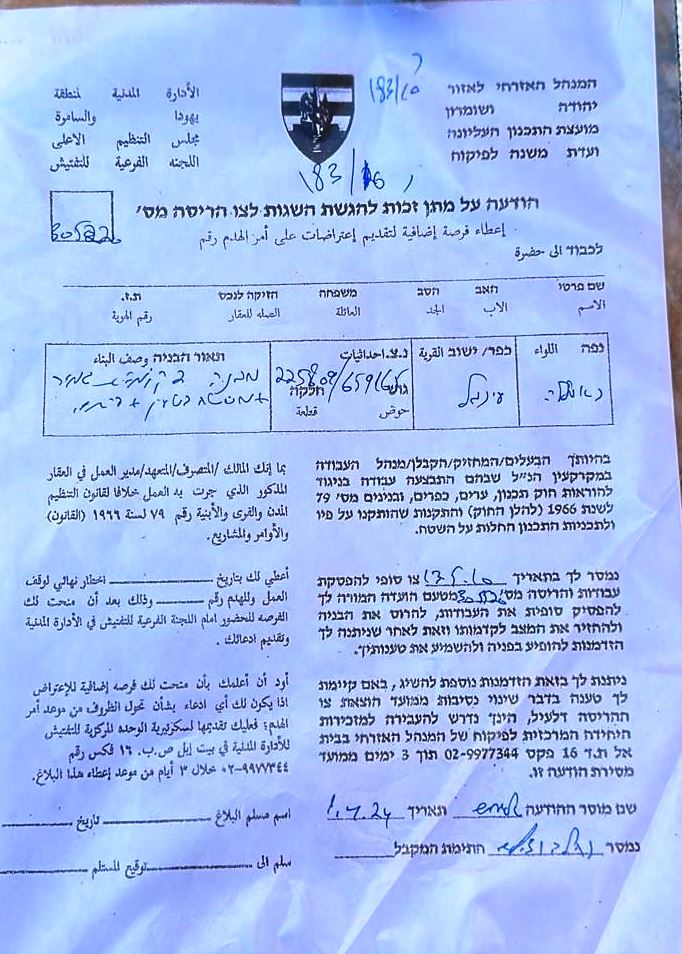 המנהל האזרחי לאזור
יהודה ושומרון
מועצת התכנון העליונה
ועדת משנה לפיקוח
الأدارة المدنية لمنطقة
يهودا والسامرة
مجلس التنظيم الاعلى
اللجنه الفرعية للتفتيش
183/16
183/16
הודעה על מתן זכות להגשת השגות לצו הריסה מס'
إعطاء فرصة إضافية لتقديم إعتراضات على أمر الهدم رقم
לכבוד الى حضرة
שם פרטי האב הסב משפחה הזיקה לנכס ת.ז.
الاسم الاب الجد العائلة الصله للعقار رقم الهوية
נפה اللواء
כפר/ ישוב القرية
נ.צ.احداثيات
תאור הבניה وصف البناء
225809/659165
גוש חלקה
حوض قطعة
בהיותך הבעלים/המחזיק/הקבלן/מנהל העבודה
במקרקעין הנ"ל שבהם התבצעה עבודה בניגוד
להוראות חוק תכנון, ערים, כפרים, ובניינים מס' 79
לשנת 1966 (להלן החוק) והתקנות שהותקנו על פיו
ולתכניות התכנון החלות על השטח.
بما إنك المالك /المتصرف/المتعهد/مدير العمل في العقار
المذكور الذي جرت يد العمل خلافا لقانون التنظيم
المدن والقرى والأبنية رقم ٧٩ لسنة ١٩٦٦ (القانون)
والأوامر والمشاريع.
נמסר לך בתאריך צו סופי להפסקת
עבודות והריסה מס' מטעם הועדה המורה לך
להפסיק סופית את העבודות, להרוס את הבניה
ולהחזיר את המצב לקדמותו וזאת לאחר שניתנה לך
הזדמנות להופיע בפניה ולהשמיע את טענותיך.
أعطي لك بتاريخ اخطار نهائي لوقف
العمل وللهدم رقم وذلك بعد أن منحت لك
الفرصه للحضور امام اللجنة الفرعية للتفتيش في الأدارة المدنية
وتقديم ادعائك .
ניתנת לך בזאת הזדמנות נוספת להשיג, באם קיימת
לך טענה בדבר שינוי נסיבות ממועד הוצאת צו
ההריסה דלעיל, הינך נדרש להעבירה למזכירות
היחידה המרכזית לפיקוח של המנהל האזרחי בבית
אל ת.ד 16 פקס 02-9977344 תוך 3 ימים ממועד
מסירת הודעה זו.
أود أن أعلمك بأن منحت لك فرصه إضافية للإعتراض
اذا يكون لك أي ادعاء بشأن تحول الظروف من موعد أمر
الهدم؛ فعليك تقديمها لسكرتيرية الوحده المركزية للتفتيش
للأدارة المدنية في بيت إيل ص.ب. ١٦ فكس رقم
٠٢-٩٩٧٧٣٤٤ خلال ٣ أيام من موعد إعطاء هذا البلاغ.
שם מוסר ההודעה ותאריך 1.7.24
اسم مسلم البلاغ تاريخ
נמסר חתימת המקבל
سلم الى توقيع المستلم